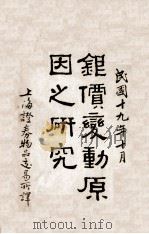 民國十九年十月
銀價變動原
因之研究
上海證券物品交易所譯
www.mtoou.info